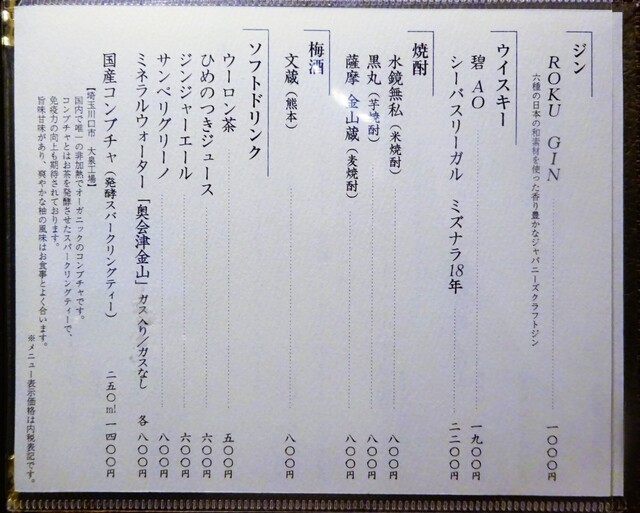 ジン
ROKU GIN 一〇〇〇円
六種の日本の和素材を使った香り豊かなジャパニーズクラフトジン
ウイスキー
碧 AO 一九〇〇円
シーバスリーガル ミズナラ18年 二二〇〇円
焼酎
水鏡無私（米焼酎） 八〇〇円
黒丸（芋焼酎） 八〇〇円
薩摩 金山蔵（麦焼酎） 八〇〇円
梅酒
文蔵（熊本） 八〇〇円
ソフトドリンク
ウーロン茶 五〇〇円
ひめのつきジュース 六〇〇円
ジンジャーエール 六〇〇円
サンペリグリーノ 八〇〇円
ミネラルウォーター「奥会津金山」ガス入り／ガスなし 各 八〇〇円
国産コンブチャ（発酵スパークリングティー） 二五〇ml 一四〇〇円
【埼玉川口市 大泉工場】
国内で唯一の非加熱でオーガニックのコンブチャです。
コンブチャとはお茶を発酵させたスパークリングティーで、
免疫力の向上も期待されております。
旨味甘味があり、爽やかな柚の風味はお食事とよく合います。
※メニュー表示価格は内税表記です。